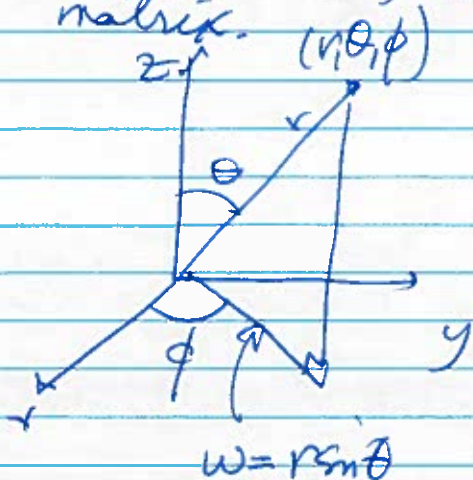 matrix.
z
(r,θ,φ)
r
θ
φ
y
w = r sin θ